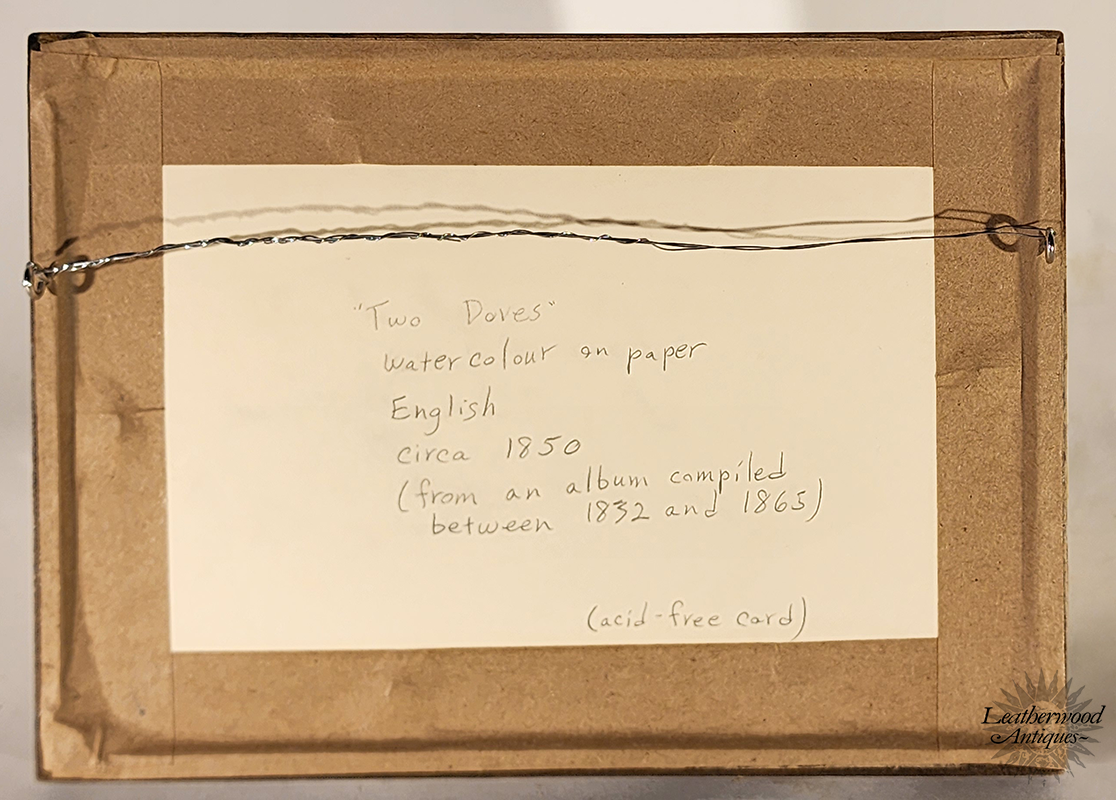 "Two Doves"
watercolour on paper
English
circa 1850
(from an album compiled
between 1832 and 1865)
(acid-free card)
Leatherwood
Antiques~